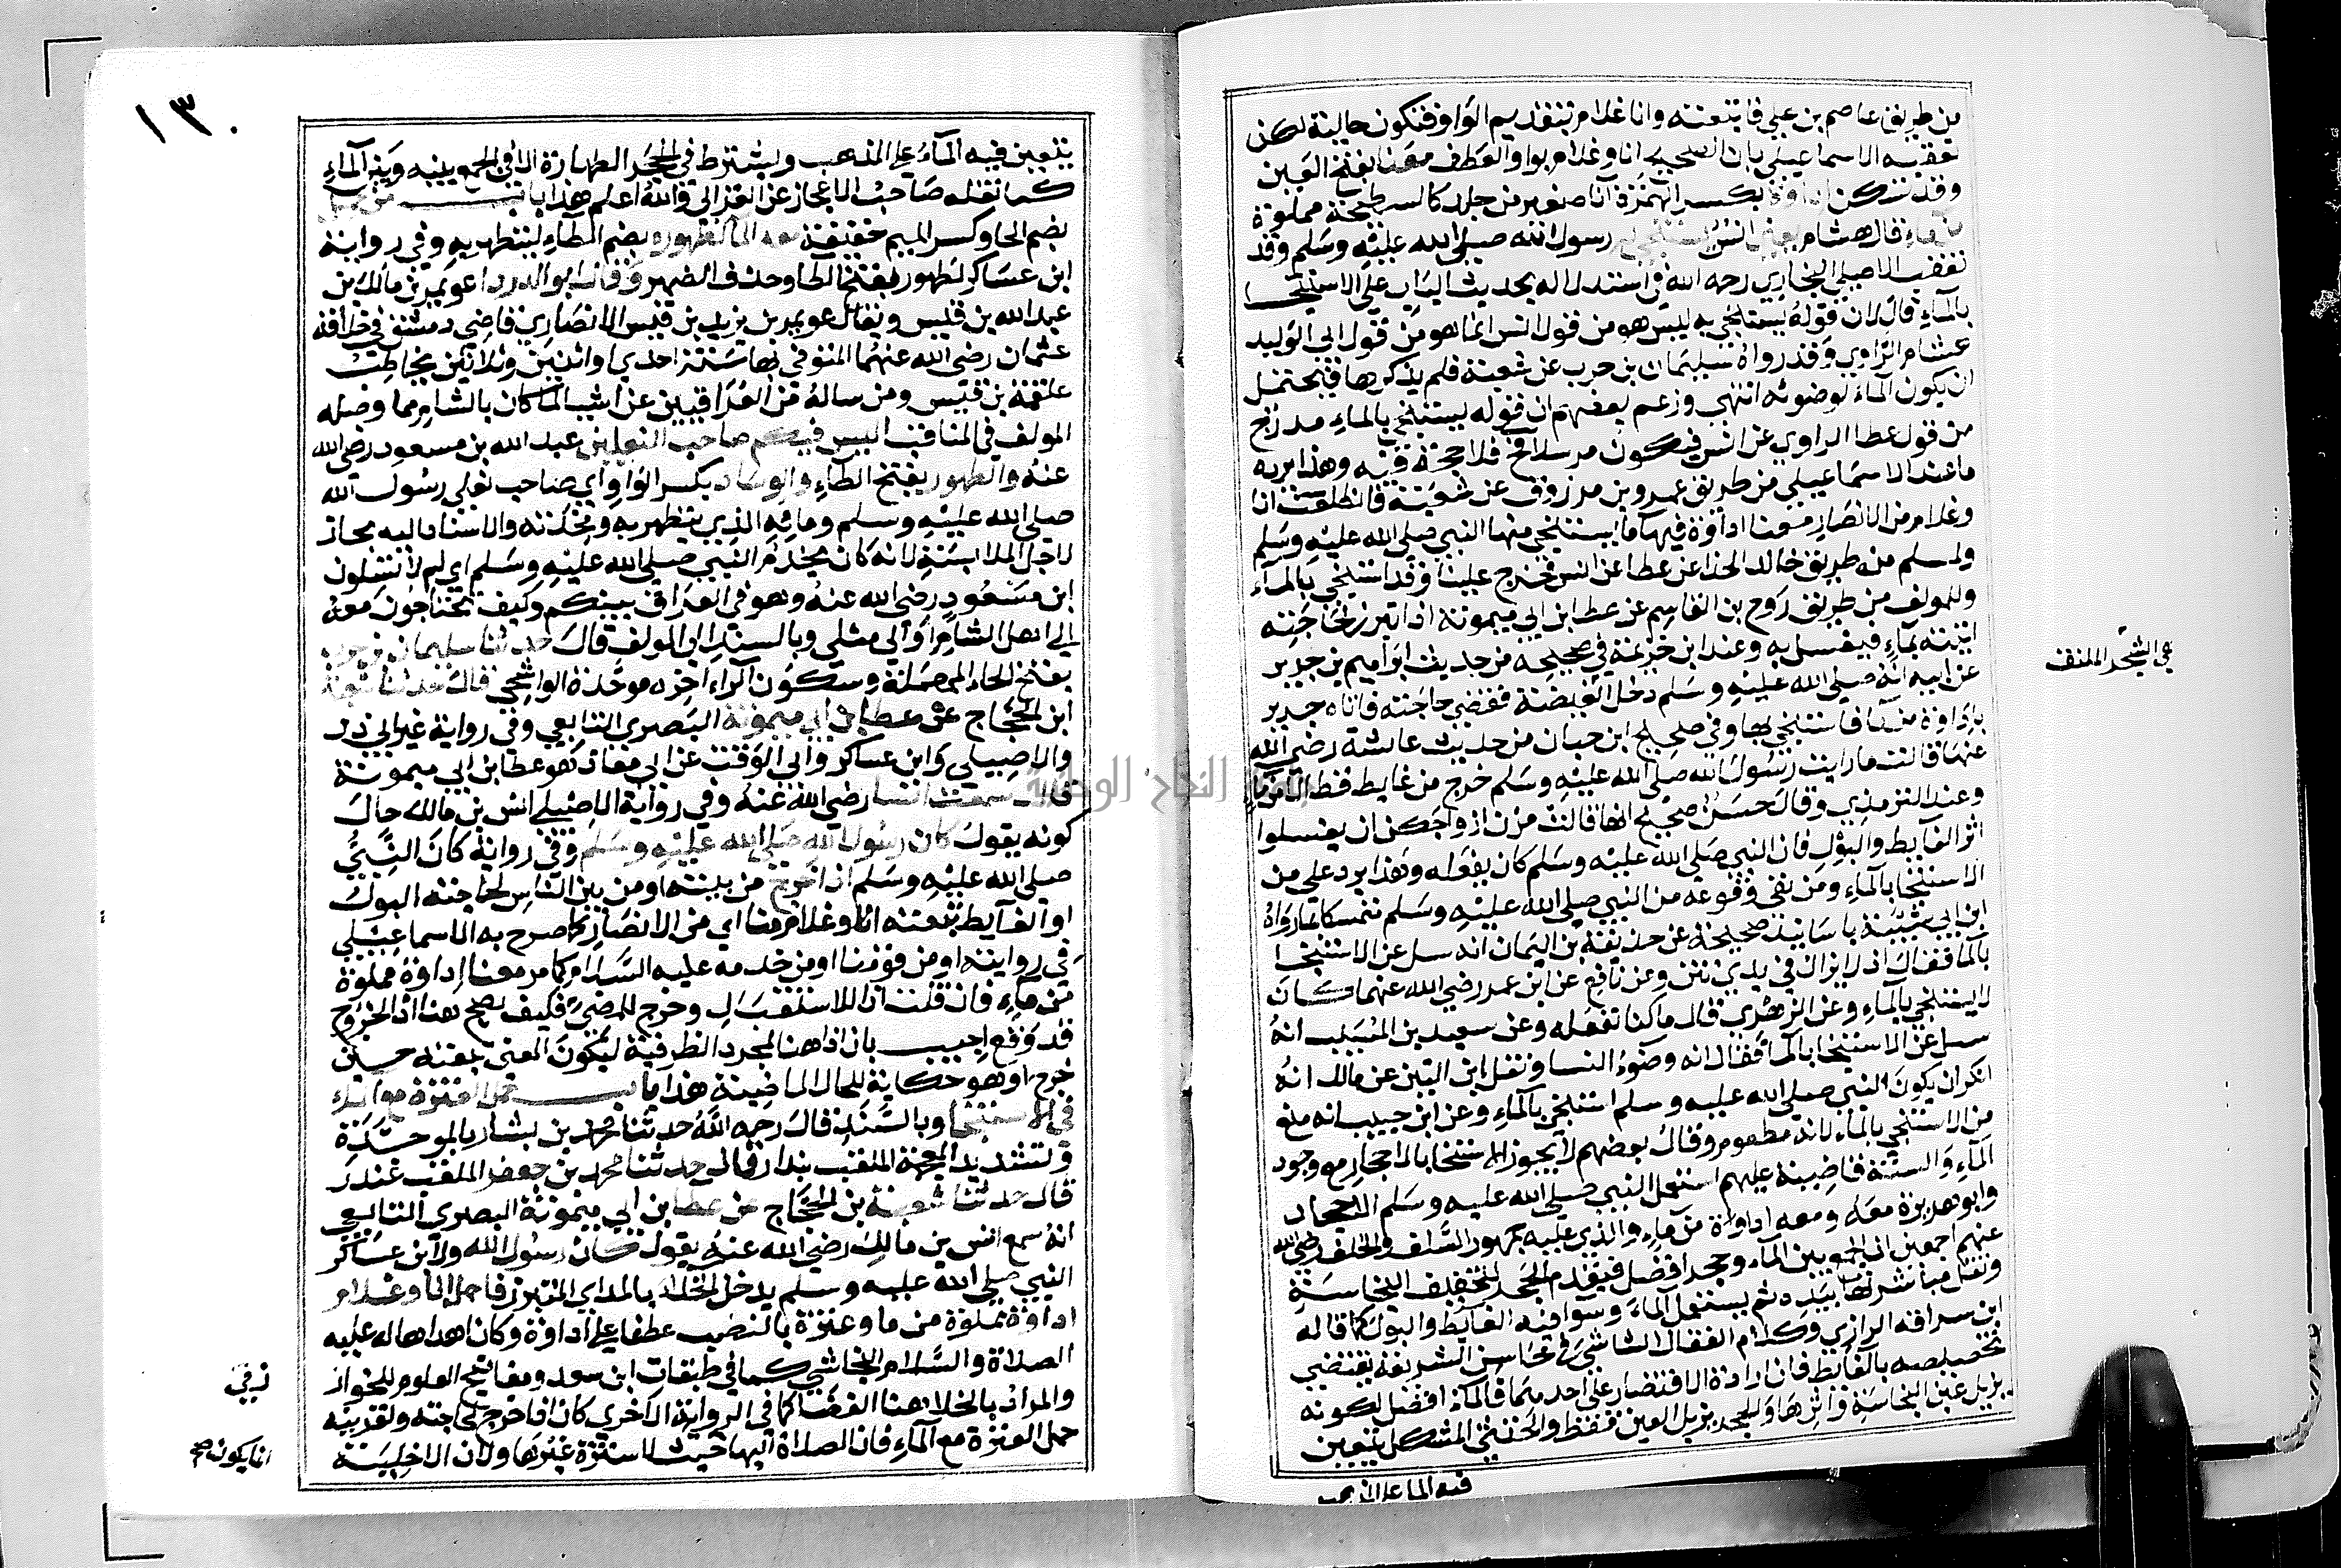 من طريق عاصم بن علي فاتبعته وانا غلام بتقديم الواو فتكون حالية لكن
تعقبه الاسماعيلي بان الصحيح انا وغلام بواو العطف معنا بفتح العين
وقد تسكن اداوة بكسر الهمزة انا صغير من جلد كالسطيحة مملوة
من ماء قال هشام يعني انس يستنجي به رسول الله صلى الله عليه وسلم وقد
تعقب الاصيلي البخاري رحمه الله في استدلاله بحديث الباب على الاستنجا
بالماء قال لان قوله يستنجي به ليس هو من قول انس انما هو من قول ابي الوليد
هشام الراوي وقد رواه سليمان بن حرب عن شعبة فلم يذكرها فيحتمل
ان يكون الماء لوضوئه انتهى وزعم بعضهم ان قوله يستنجي بالماء مدرج
من قول عطا الراوي عن انس فيكون مرسلا فلا حجة فيه وهذا يرده
ما عند الاسماعيلي من طريق عمرو بن مرزوق عن شعبة فانطلقت انا
وغلام من الانصار معنا اداوة فيها ما يستنجي منها النبي صلى الله عليه وسلم
ولمسلم من طريق خالد الحذا عن عطا عن انس فخرج علينا وقد استنجى بالماء
وللمولف من طريق روح بن القاسم عن عطا ابن ابي ميمونة اذا تبرز لحاجته
اتيته بماء فيغسل به وعند ابن خزيمة في صحيحه من حديث ابراهيم بن جرير
عن ابيه انه صلى الله عليه وسلم دخل الغيضة فقضى حاجته فاتاه جرير
باداوة من ما فاستنجى بها وفي صحيح ابن حبان من حديث عائشة رضي الله
عنها قالت ما رايت رسول الله صلى الله عليه وسلم خرج من غايط قط الا مس ماء
وعند الترمذي وقال حسن صحيح انها قالت مرن ازواجكن ان يغسلوا
اثر الغايط والبول فان النبي صلى الله عليه وسلم كان يفعله وهذا يرد على من
الاستنجا بالماء ومن نفى وقوعه من النبي صلى الله عليه وسلم تمسكا بما رواه
ابن ابي شيبة باسانيد صحيحة عن حذيفة بن اليمان انه سل عن الاستنجا
بالما فقال اذ لا يزال في يدي نتن وعن نافع عن ابن عمر رضي الله عنهما كان
لا يستنجي بالماء وعن الزهري قال ما كنا نفعله وعن سعيد بن المسيب انه
سل عن الاستنجا بالما فقال انه وضوء النسا ونقل ابن التين عن مالك انه
انكر ان يكون النبي صلى الله عليه وسلم استنجى بالماء وعن ابن حبيب انه منع
من الاستنجي بالماء لانه مطعوم وقال بعضهم لا يجوز الاستنجا بالاحجار مع وجود
الماء والسنة قاضية عليهم استعمل النبي صلى الله عليه وسلم الاحجار
وابو هريرة معه ومعه اداواة من ماء والذي عليه جمهور السلف والخلف رضي الله
عنهم اجمعين ان الجمع بين الماء وحجر افضل فيقدم الحجر لتخفيف النجاسة
وتقل مباشرتها بيده ثم يستعمل الماء وسوا فيه الغايط والبول كما قاله
ابن سراقه الرازي وكلام القفال الشاشي في محاسن الشريعة يقتضي
تخصيصه بالغايط فان اراد الاقتصار على احدهما فالماء افضل لكونه
يزيل عين النجاسة واثرها والحجر يزيل العين فقط والخنثي المشكل يتعين
فيه الما على المذهب
على الشجر الملتف
١٣٠
يتعين فيه الماء على المذهب ويشترط في الحجر الطهارة الا في الجمع بينه وبين الماء
كما نقله صاحب الاعجاز عن الغزالي والله اعلم هذا باب من حمل
بضم الحا وكسر الميم خفيفة معه الما لطهوره بضم الطاء ليتطهر به وفي رواية
ابن عساكر لطهور بفتح الطا وحذف الضمير وقال ابو الدردا عويمر بن مالك بن
عبد الله بن قيس ويقال عويمر بن يزيد بن قيس الانصاري قاضي دمشق في خلافة
عثمان رضي الله عنهما المتوفى بها سنة احدي واثنين وثلاثين يخاطب
علقمة بن قيس ومن ساله من العراقيين عن اشيا لما كان بالشام مما وصله
المولف في المناقب اليس فيكم صاحب النعلين عبد الله بن مسعود رضي الله
عنه والطهور بفتح الطاء والوساد بكسر الواو اي صاحب نعلي رسول الله
صلى الله عليه وسلم ومائه الذي يتطهر به ومخدته والاسناد اليه مجاز
لاجل الملابسة لانه كان يخدم النبي صلى الله عليه وسلم اي لم لا تسلون
ابن مسعود رضي الله عنه وهو في العراق بينكم وكيف تحتاجون معه
الى اهل الشام او الى مثلي وبالسند الى المولف قال حدثنا سليمان بن حرب
بفتح الحاء المهملة وسكون الراء اخره موحدة الواشحي قال حدثنا شعبة
ابن الحجاج عن عطا بن ابي ميمونة البصري التابعي وفي رواية غير ابي ذر
والاصيلي وابن عساكر وابي الوقت عن ابي معاذ هو عطا بن ابي ميمونة
قال سمعت انسا رضي الله عنه وفي رواية الاصيلي انس بن مالك حال
كونه يقول كان رسول الله صلى الله عليه وسلم وفي رواية كان النبي
صلى الله عليه وسلم اذا خرج من بيته او من بين الناس لحاجته البول
او الغايط تبعته انا وغلام منا اي من الانصار كما صرح به الاسماعيلي
في روايته او من قومنا او من خدمه عليه السلام كما مر معنا اداوة مملوة
من ماء فان قلت اذا للاستقبال وخرج للمضي فكيف يصح هنا اذ الخروج
قد وقع اجيب بان اذا هنا لمجرد الظرفية ليكون المعنى تبعته حين
خرج او هو حكاية للحال الماضية هذا باب حمل العنزة مع الماء
في الاستنجا وبالسند قال رحمه الله حدثنا محمد بن بشار بالموحدة
وتشديد المعجمة الملقب بندار قال حدثنا محمد بن جعفر الملقب غندر
قال حدثنا شعبة بن الحجاج عن عطا بن ابي ميمونة البصري التابعي
انه سمع انس بن مالك رضي الله عنه يقول كان رسول الله ولابن عساكر
النبي صلى الله عليه وسلم يدخل الخلا بالمد اي التبرز فاحمل انا وغلام
اداوة مملوة من ما وعنزة بالنصب عطفا على اداوة وكان اهداها له عليه
الصلاة والسلام النجاشي كما في طبقات ابن سعد ومفاتيح العلوم للخوارز
والمراد بالخلا هنا الفضا كما في الرواية الاخرى كان اذا خرج لحاجته ولقرينة
حمل العنزة مع الماء فان الصلاة اليها حيث لا سترة غيرها ولان الاخلية
انما يكون صح
جامعة النجاح الوطنية